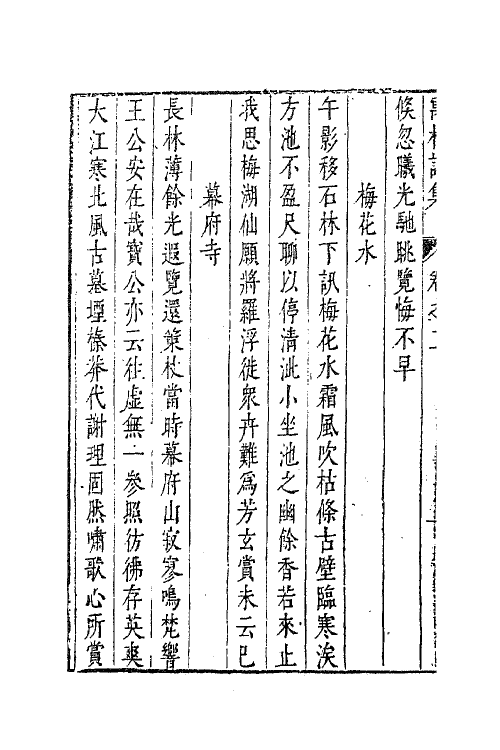 詩集 卷之二
倏忽曦光馳眺覽悔不早
梅花水
午影移石林下訊梅花水霜風吹枯條古壁臨寒涘
方池不盈尺聊以停清泚小坐池之幽餘香若來止
我思梅湖仙願將羅浮徙衆卉難爲芳玄賞未云已
幕府寺
長林薄餘光遐覽還策杖當時幕府山寂寥鳴梵響
王公安在哉寶公亦云往虛無一參照彷彿存英爽
大江寒北風古墓堙榛莽代謝理固然嘯歌心所賞